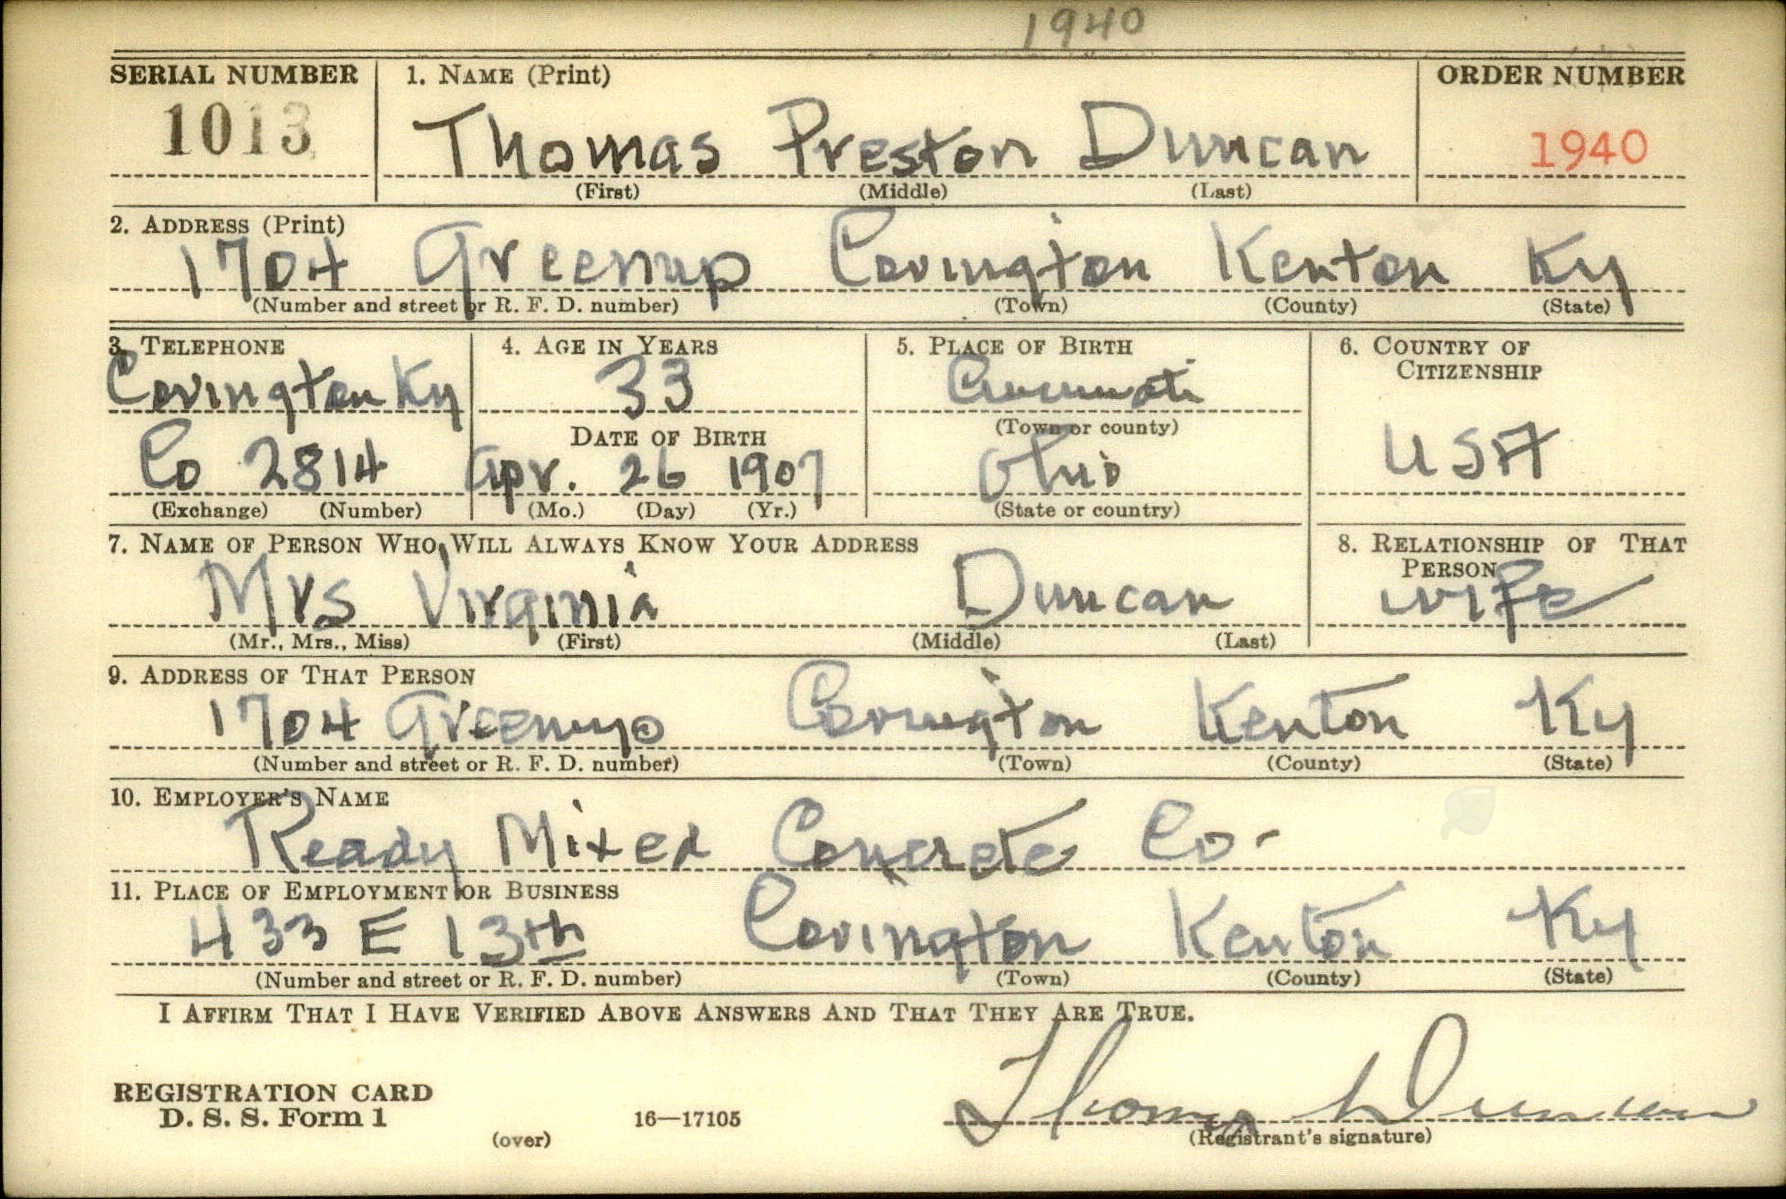 1940
SERIAL NUMBER 1. NAME (Print) ORDER NUMBER
1013 Thomas Preston Duncan 1940
(First) (Middle) (Last)
2. ADDRESS (Print)
1704 Greenup Covington Kenton Ky
(Number and street or R. F. D. number) (Town) (County) (State)
3. TELEPHONE 4. AGE IN YEARS 5. PLACE OF BIRTH 6. COUNTRY OF CITIZENSHIP
Covington Ky 33 Cincinnati
DATE OF BIRTH (Town or county)
Co 2814 Apr. 26 1907 Ohio USA
(Exchange) (Number) (Mo.) (Day) (Yr.) (State or country)
7. NAME OF PERSON WHO WILL ALWAYS KNOW YOUR ADDRESS 8. RELATIONSHIP OF THAT PERSON
Mrs Virginia Duncan wife
(Mr., Mrs., Miss) (First) (Middle) (Last)
9. ADDRESS OF THAT PERSON
1704 Greenup Covington Kenton Ky
(Number and street or R. F. D. number) (Town) (County) (State)
10. EMPLOYER'S NAME
Ready Mixed Concrete Co-
11. PLACE OF EMPLOYMENT OR BUSINESS
433 E 13th Covington Kenton Ky
(Number and street or R. F. D. number) (Town) (County) (State)
I AFFIRM THAT I HAVE VERIFIED ABOVE ANSWERS AND THAT THEY ARE TRUE.
REGISTRATION CARD
D. S. S. Form 1 16—17105 Thomas Duncan
(over) (Registrant's signature)